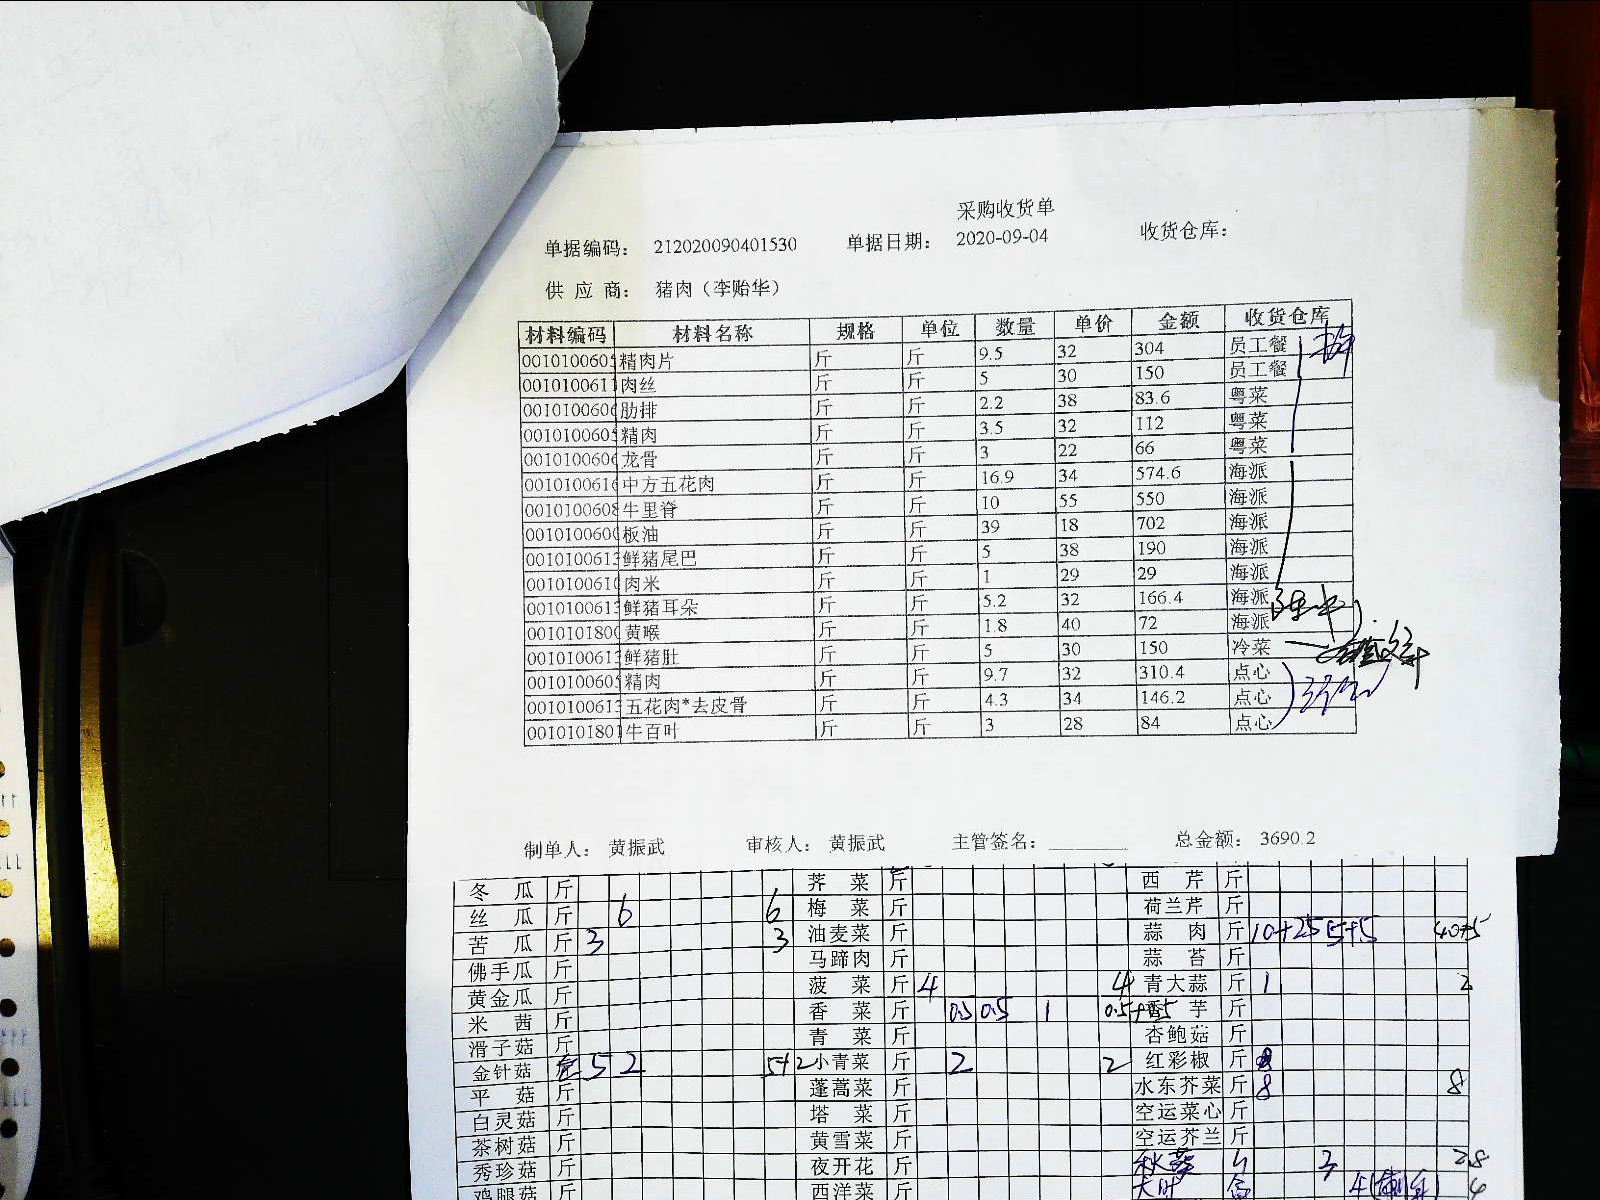 采购收货单
单据编码： 212020090401530 单据日期： 2020-09-04 收货仓库：
供 应 商： 猪肉（李贻华）
材料编码 材料名称 规格 单位 数量 单价 金额 收货仓库
001010060 精肉片 斤 斤 9.5 32 304 员工餐
001010061 肉丝 斤 斤 5 30 150 员工餐
001010060 肋排 斤 斤 2.2 38 83.6 粤菜
001010060 精肉 斤 斤 3.5 32 112 粤菜
001010060 龙骨 斤 斤 3 22 66 粤菜
001010061 中方五花肉 斤 斤 16.9 34 574.6 海派
001010060 牛里脊 斤 斤 10 55 550 海派
001010060 板油 斤 斤 39 18 702 海派
001010061 鲜猪尾巴 斤 斤 5 38 190 海派
001010061 肉米 斤 斤 1 29 29 海派
001010061 鲜猪耳朵 斤 斤 5.2 32 166.4 海派
001010180 黄喉 斤 斤 1.8 40 72 海派
001010061 鲜猪肚 斤 斤 5 30 150 冷菜
001010060 精肉 斤 斤 9.7 32 310.4 点心
001010061 五花肉*去皮骨 斤 斤 4.3 34 146.2 点心
001010180 牛百叶 斤 斤 3 28 84 点心
制单人： 黄振武 审核人： 黄振武 主管签名： 总金额： 3690.2
冬 瓜 斤 荠 菜 斤 西 芹 斤
丝 瓜 斤 6 6 梅 菜 斤 荷兰芹 斤
苦 瓜 斤 3 3 油麦菜 斤 蒜 肉 斤
佛手瓜 斤 马蹄肉 斤 蒜 苔 斤
黄金瓜 斤 菠 菜 斤 4 4 青大蒜 斤 1 2
米 茜 斤 香 菜 斤 0.5 0.5 1 芋 斤
滑子菇 斤 青 菜 斤 杏鲍菇 斤
金针菇 5 2 5+2 小青菜 斤 2 2 红彩椒 斤
平 菇 斤 蓬蒿菜 斤 水东芥菜 斤 8 8
白灵菇 斤 塔 菜 斤 空运菜心 斤
茶树菇 斤 黄雪菜 斤 空运芥兰 斤
秀珍菇 斤 夜开花 斤 3
鸡腿菇 斤 西洋菜 斤